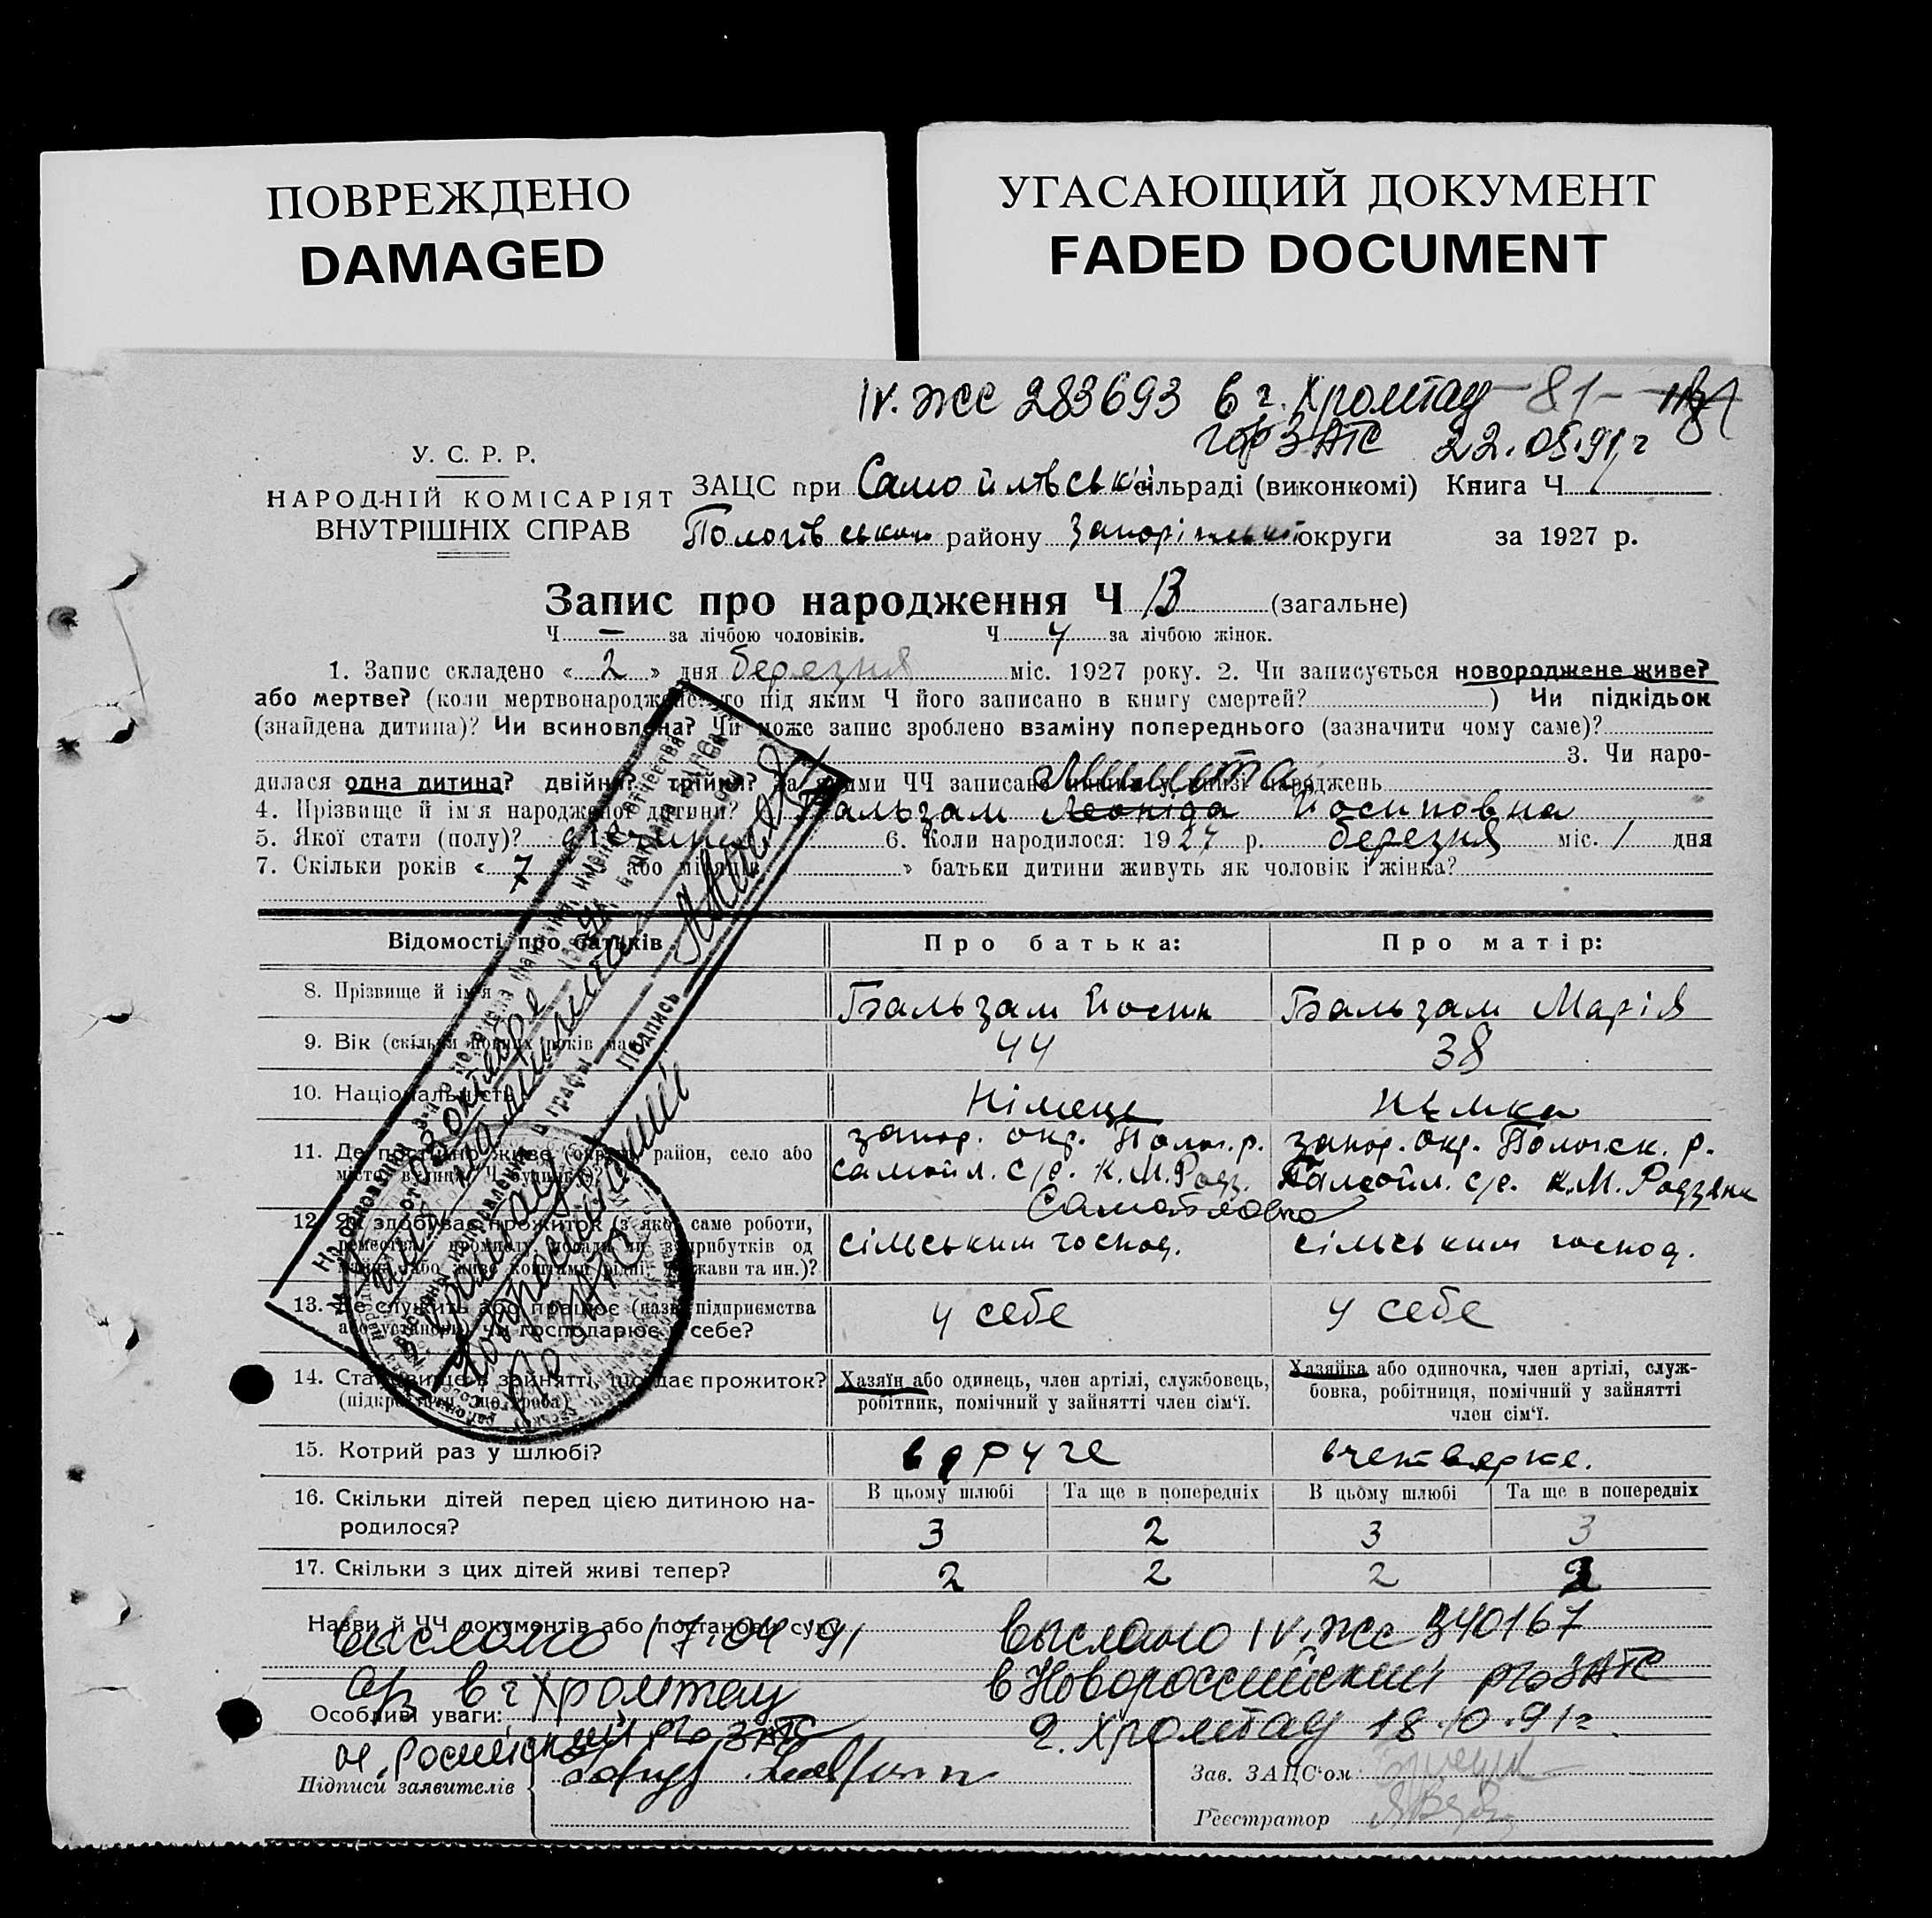 ПОВРЕЖДЕНО
DAMAGED
УГАСАЮЩИЙ ДОКУМЕНТ
FADED DOCUMENT
IV. ЖС 283693 в г. Хромтау -81-
горЗАГС 22.05.91г
У. С. Р. Р.
НАРОДНІЙ КОМІСАРІЯТ
ВНУТРІШНІХ СПРАВ
ЗАЦС при Самойлівській сільраді (виконкомі) Книга Ч 1
Пологівського району Запорізької округи за 1927 р.
Запис про народження Ч 13 (загальне)
Ч — за лічбою чоловіків. Ч 4 за лічбою жінок.
1. Запис складено « 2 » дня березня міс. 1927 року. 2. Чи записується новороджене живе?
або мертве? (коли мертвонароджене: то під яким Ч його записано в книгу смертей? ) Чи підкідьок
(знайдена дитина)? Чи всиновлена? Чи може запис зроблено взаміну попереднього (зазначити чому саме)?
3. Чи наро-
дилася одна дитина? двійня? трійня? За якими ЧЧ записано у книзі народжень
4. Прізвище й ім'я народженої дитини? Бальзам Леоніда Йосиповна
5. Якої стати (полу)? 6. Коли народилося: 1927 р. березня міс. 1 дня
7. Скільки років « 7 або місяців » батьки дитини живуть як чоловік і жінка?
Відомості про батьків
Про батька:
Про матір:
8. Прізвище й ім'я
Бальзам Йосип
Бальзам Марія
9. Вік (скільки повних років має)
44
38
10. Національність
Німець
Німка
11. Де постійно живе (округа, район, село або
місто, вулиця, Ч будинку)?
запор. окр. Полог. р.
самойл. с/р. к. М. Родз.
запор. окр. Пологск. р.
Самойл. с/р. к. М. Родзянк
12. Як здобуває прожиток (з якої саме роботи,
ремества, промислу, посади чи з прибутків од
майна, або живе коштами рідні, держави та ин.)?
сільським господ.
сільським господ.
13. Де служить або працює (назва підприємства
або установи) чи господарює у себе?
у себе
у себе
14. Становище в зайнятті, що дає прожиток?
(підкреслити що треба)
Хазяїн або одинець, член артілі, службовець,
робітник, помічний у зайнятті член сім'ї.
Хазяйка або одиночка, член артілі, служ-
бовка, робітниця, помічний у зайнятті
член сім'ї.
15. Котрий раз у шлюбі?
вдруге
вчетверте.
16. Скільки дітей перед цією дитиною на-
родилося?
В цьому шлюбі
Та ще в попередніх
В цьому шлюбі
Та ще в попередніх
3
2
3
3
17. Скільки з цих дітей живі тепер?
2
2
2
2
Назви й ЧЧ документів або постанови суду
выслано 17.04 91
выслано IV. ЖС 340167
в г Хромтау
в Новороссийский р/о ЗАГС
Особливі уваги:
г. Хромтау 18.10.91г.
н. Российский р/о ЗАГС
Підписи заявителів
Зав. ЗАЦС'ом
Реєстратор
Подпись